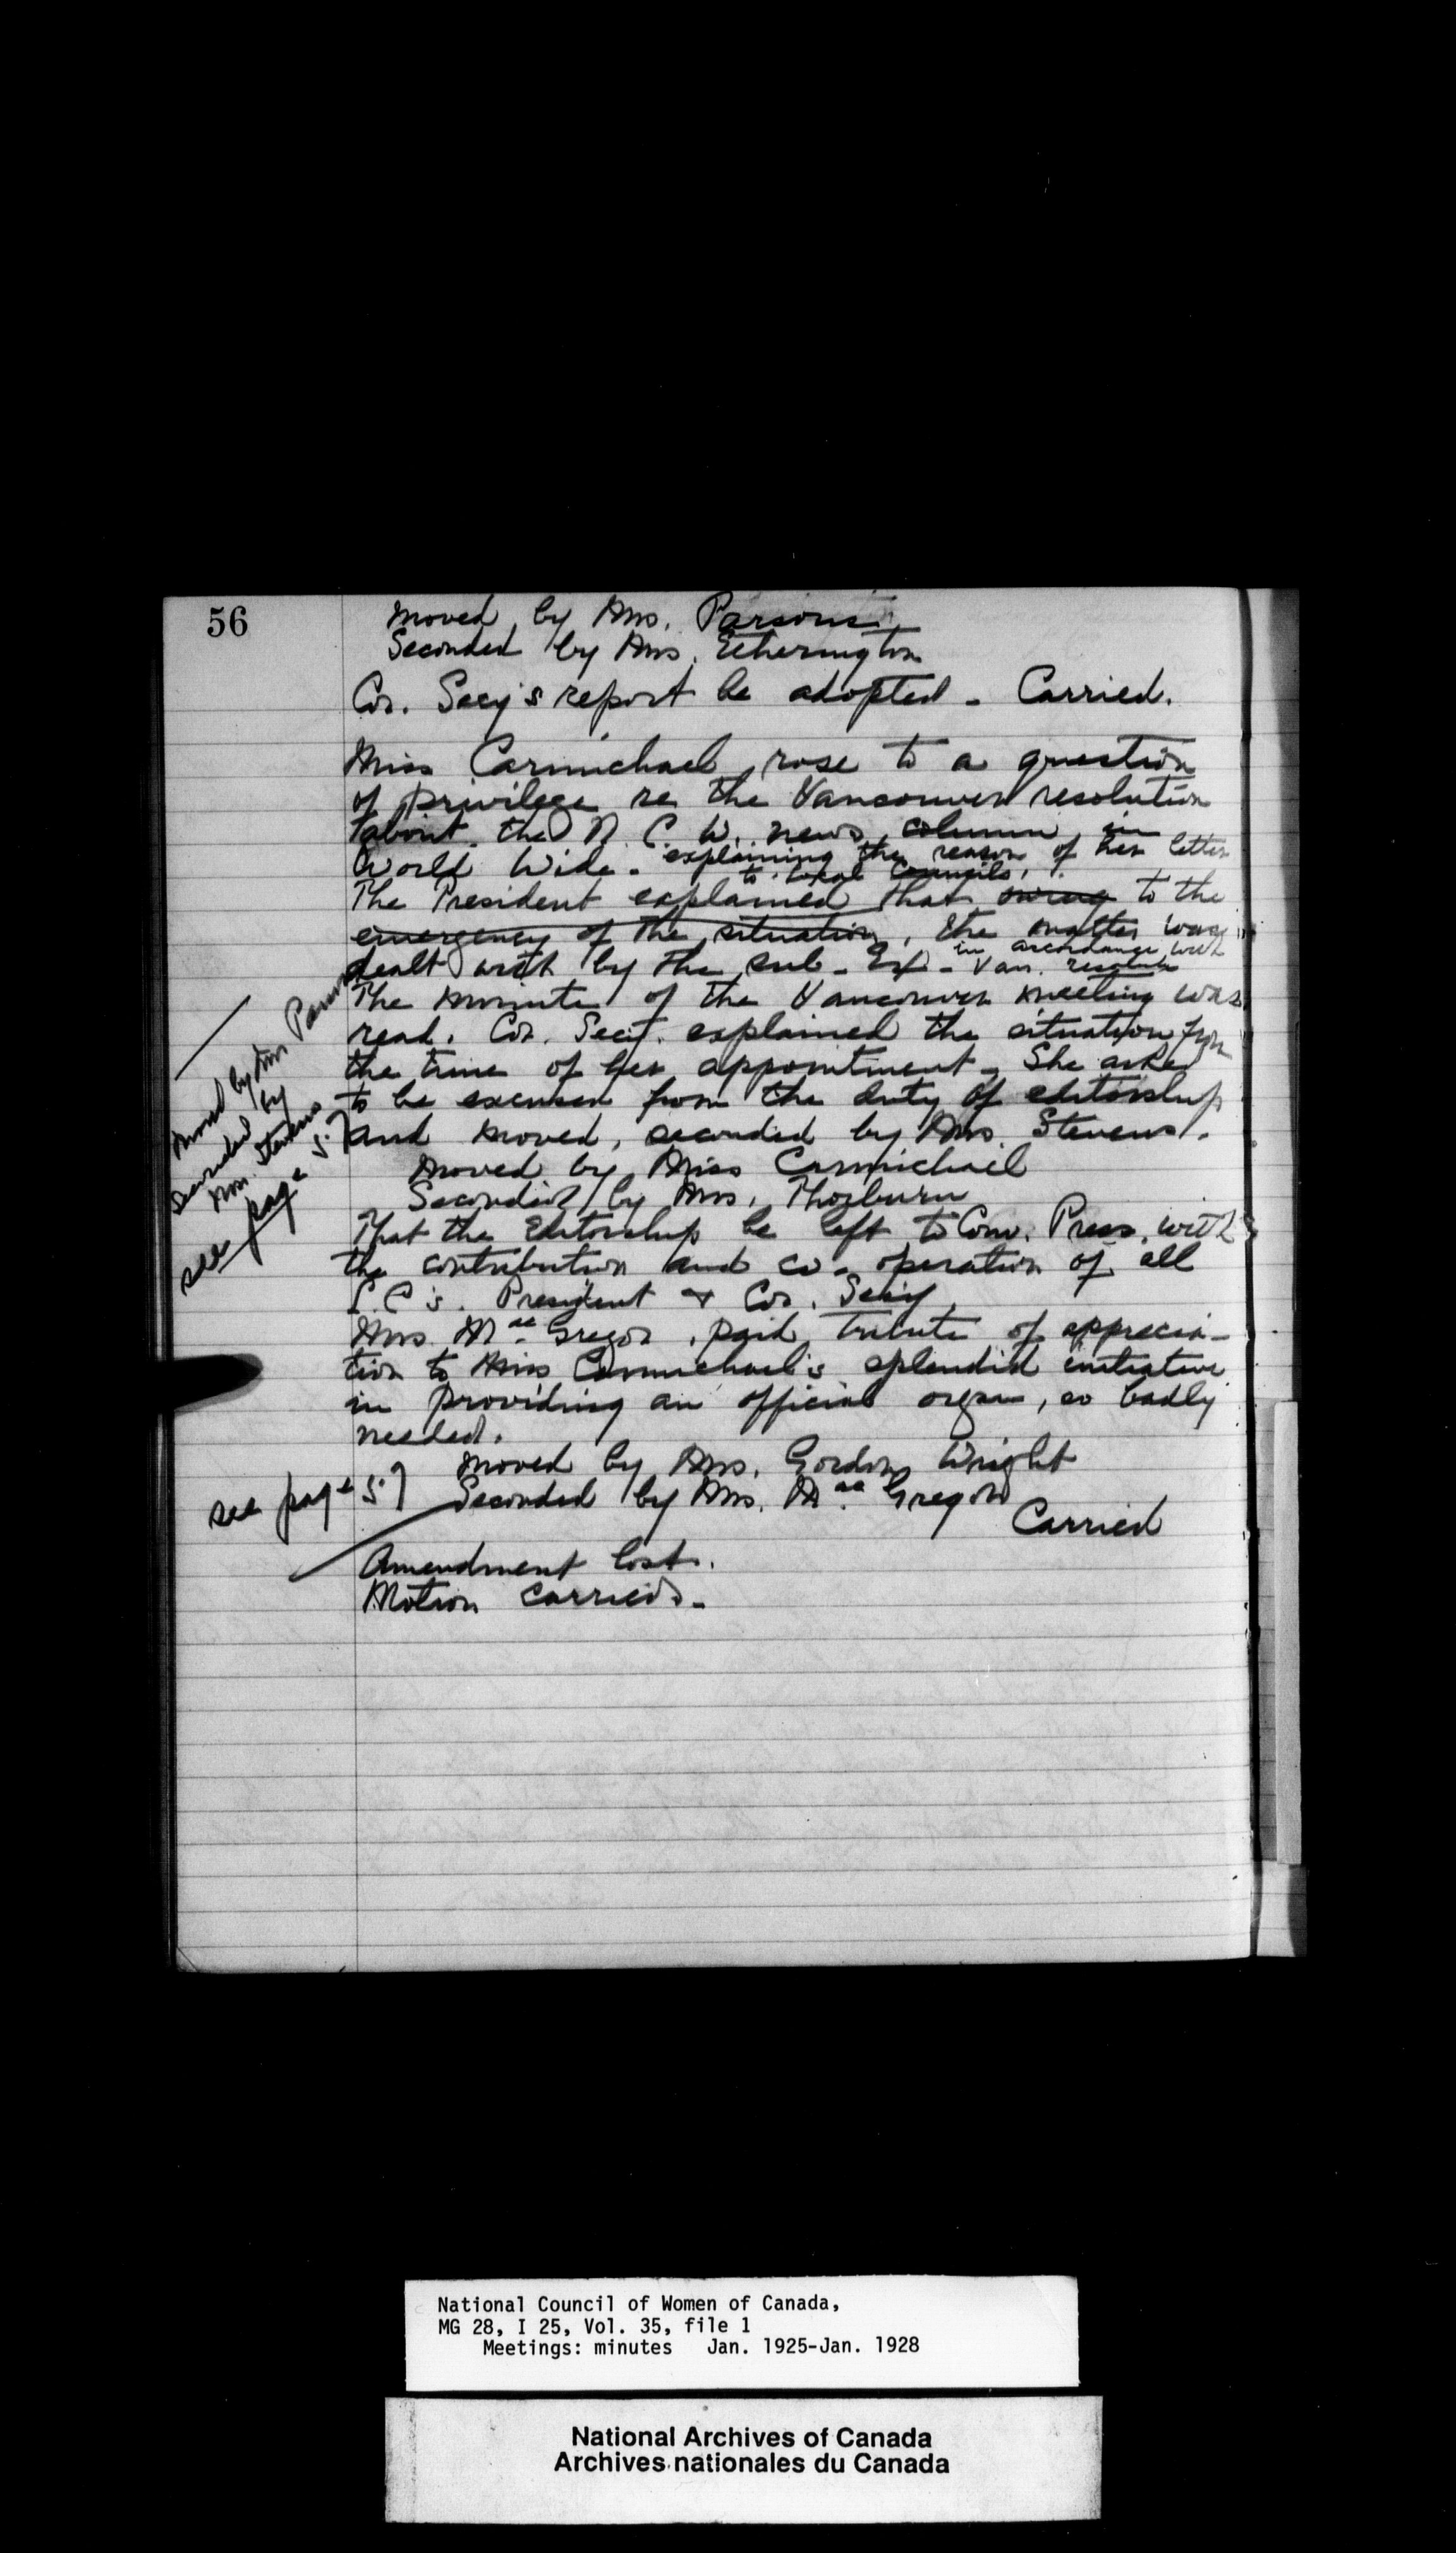 56
Moved by Mrs. Parsons
Seconded by Mrs. Etherington
Cor. Secy's report be adopted - Carried.
Miss Carmichael rose to a question
of privilege re the Vancouver resolution
about the N. C. W. news column in
World Wide - explaining the reason of her letter
to Local Councils.
The President explained that owing to the
emergency of the situation, the matter was
dealt with by the Sub-Ex - in accordance with
Van. resolution
The minute of the Vancouver meeting was
read. Cor. Secy. explained the situation from
the time of her appointment - She asked
to be excused from the duty of editorship
and moved, seconded by Mrs. Stevens.
Moved by Mrs Parsons
Seconded by
Mrs. Stevens
see page 57
Moved by Miss Carmichael
Seconded by Mrs. Thorburn
That the Editorship be left to Conv. Press, with
the contribution and co-operation of all
L.C's. President & Cor. Sec'y
Mrs. MacGregor, paid tribute of apprecia-
tion to Miss Carmichael's splendid initiative
in providing an official organ, so badly
needed.
Moved by Mrs. Gordon Wright
see page 57 Seconded by Mrs. MacGregor
Carried
Amendment lost.
Motion carried.
National Council of Women of Canada,
MG 28, I 25, Vol. 35, file 1
Meetings: minutes Jan. 1925-Jan. 1928
National Archives of Canada
Archives nationales du Canada